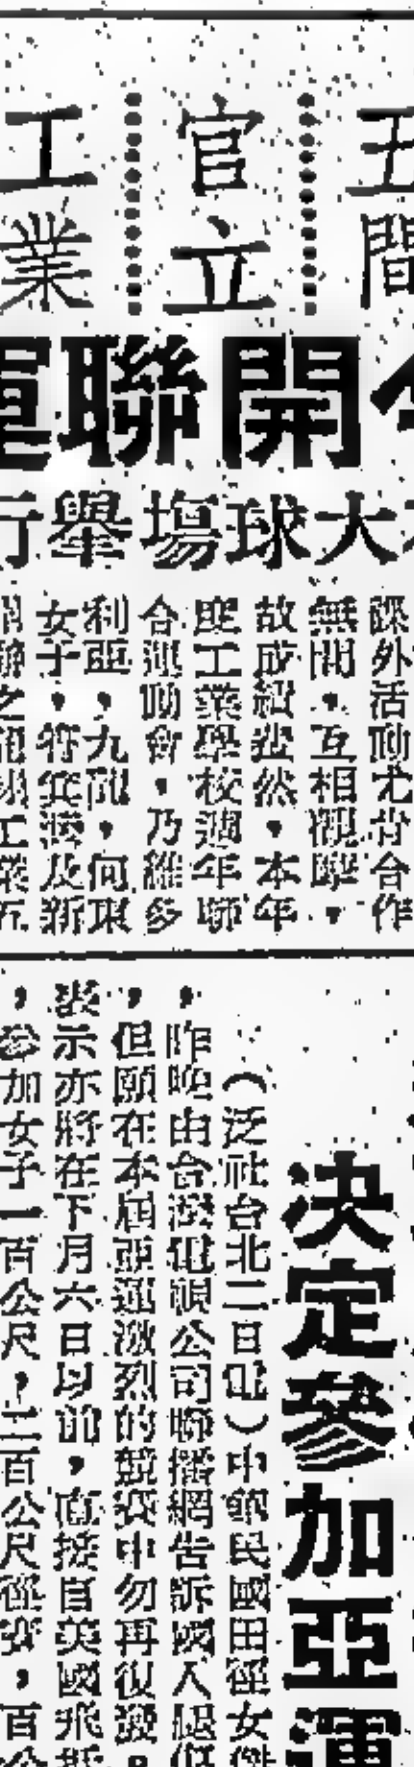 五間
官立
工業
開聯運
大球場舉行
課外活動尤肯合作
無間，互相觀摩，
故成績斐然，本年
度工業學校週年聯
合運動會，乃維多
利亞，九龍，何東
女子，符氣澳及新
決定參加亞運
（泛社台北二日電）中華民國田徑女傑
，昨晚由台灣電視公司聯播網告訴國人腿傷
，但願在本屆亞運激烈的競賽中勿再復發。
表示亦將在下月六日以前，直接自美國飛抵
，參加女子一百公尺，二百公尺徑賽，百公